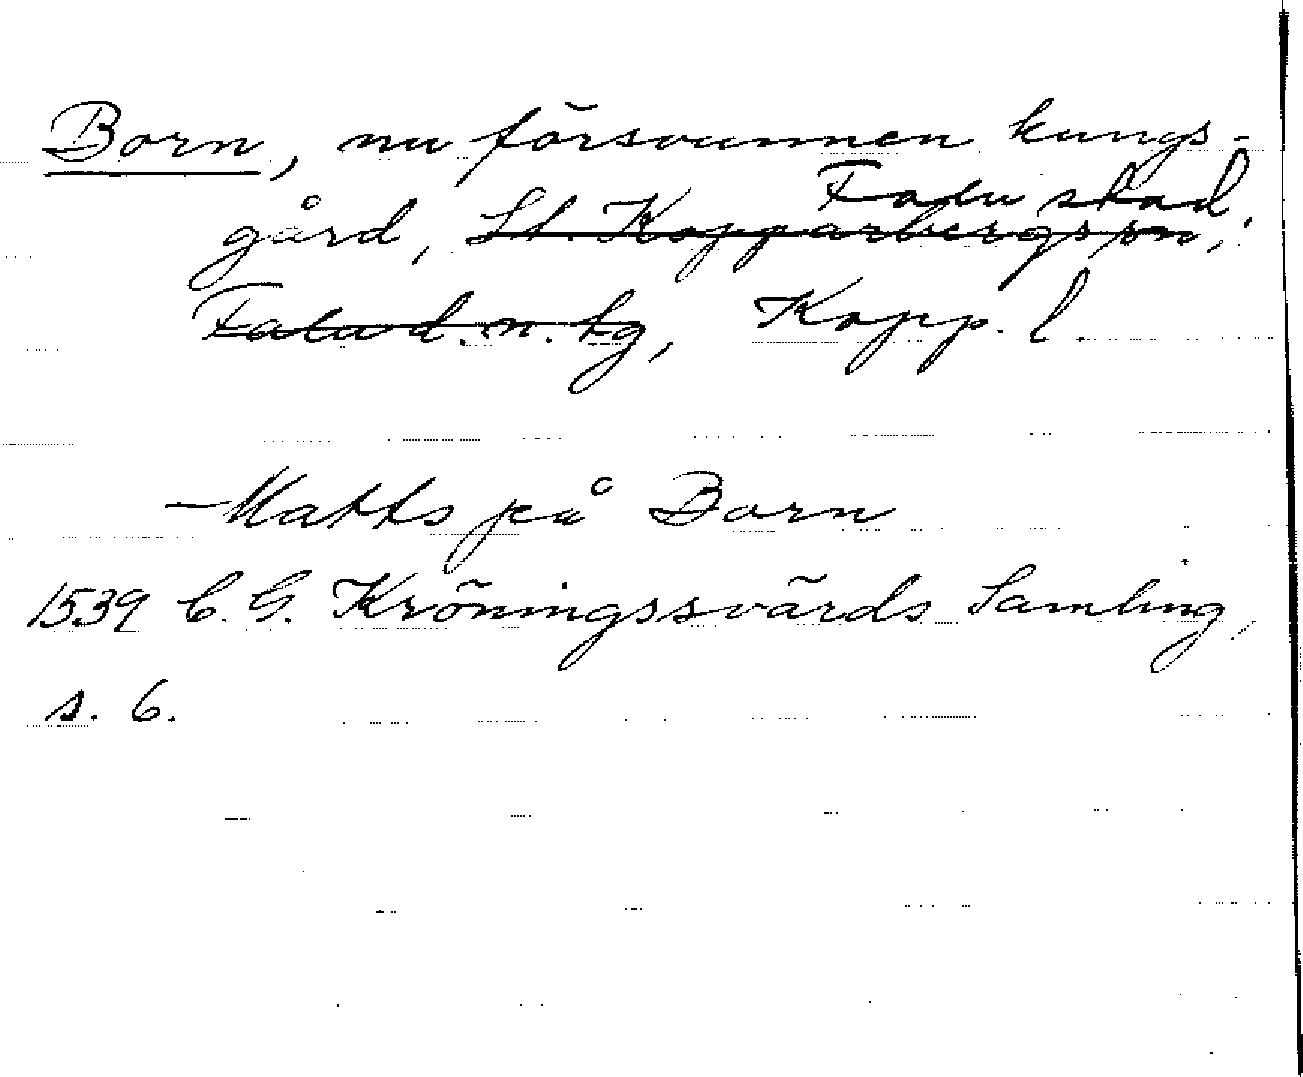 Born, nu försvunnen kungs-
Falu stad,
gård, St. Kopparbergs sn,
Falu d. n. tg, Kopp. l.
Matts på Born
1539 C. G. Kröningssvärds Samling,
s. 6.